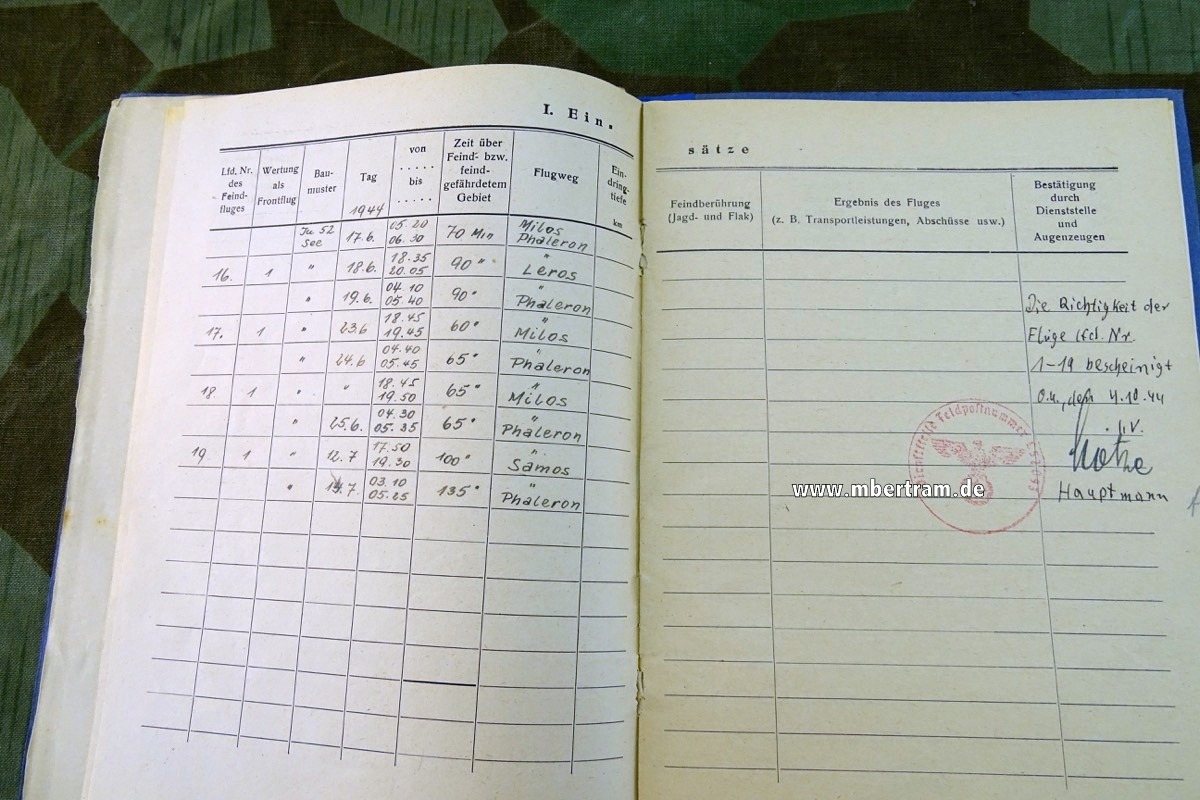 I. Ein.
Lfd. Nr. des Feind- fluges
Wertung als Frontflug
Bau- muster
Tag 1944
von ..... bis .....
Zeit über Feind- bzw. feind- gefährdetem Gebiet
Flugweg
Ein- dring- tiefe km
Ju 52 See 17.6. 05.20 06.30 70 Min Milos Phaleron
16. 1 " 18.6. 18.35 20.05 90 " " Leros
" 19.6. 04.10 05.40 90 " " Phaleron
17. 1 " 23.6 18.45 19.45 60 " " Milos
" 24.6 04.40 05.45 65 " " Phaleron
18 1 " " 18.45 19.50 65 " " Milos
" 25.6. 04.30 05.35 65 " " Phaleron
19 1 " 12.7 17.50 19.30 100 " " Samos
" 13.7. 03.10 05.25 135 " Phaleron
sätze
Feindberührung (Jagd- und Flak)
Ergebnis des Fluges (z. B. Transportleistungen, Abschüsse usw.)
Bestätigung durch Dienststelle und Augenzeugen
Die Richtigkeit der
Flüge lfd. Nr.
1-19 bescheinigt
O.U., den 4.10.44
i.V.
Hauptmann
Feldpostnummer
www.mbertram.de